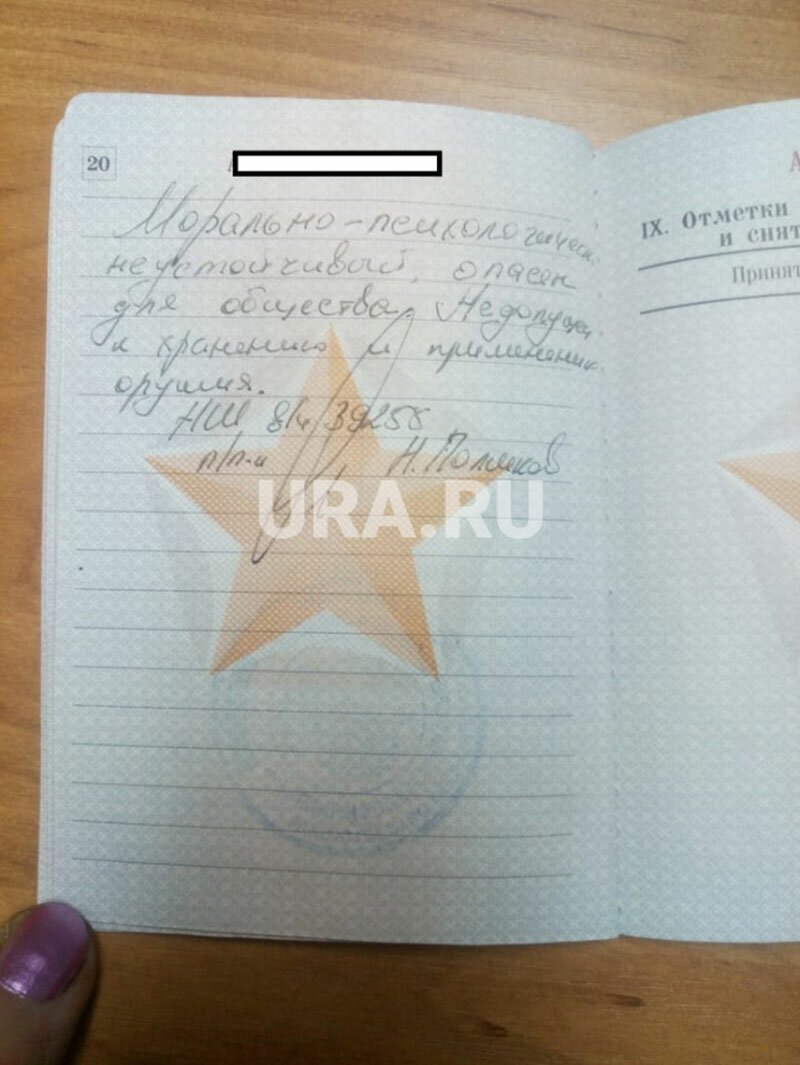 20
Морально-психологически
неустойчивый, опасен
для общества. Недопущен
к хранению и применению
оружия.
НШ в/ч 39255
п/п-к Н. Поляков
URA.RU
IX. Отметки
и снят
Принят